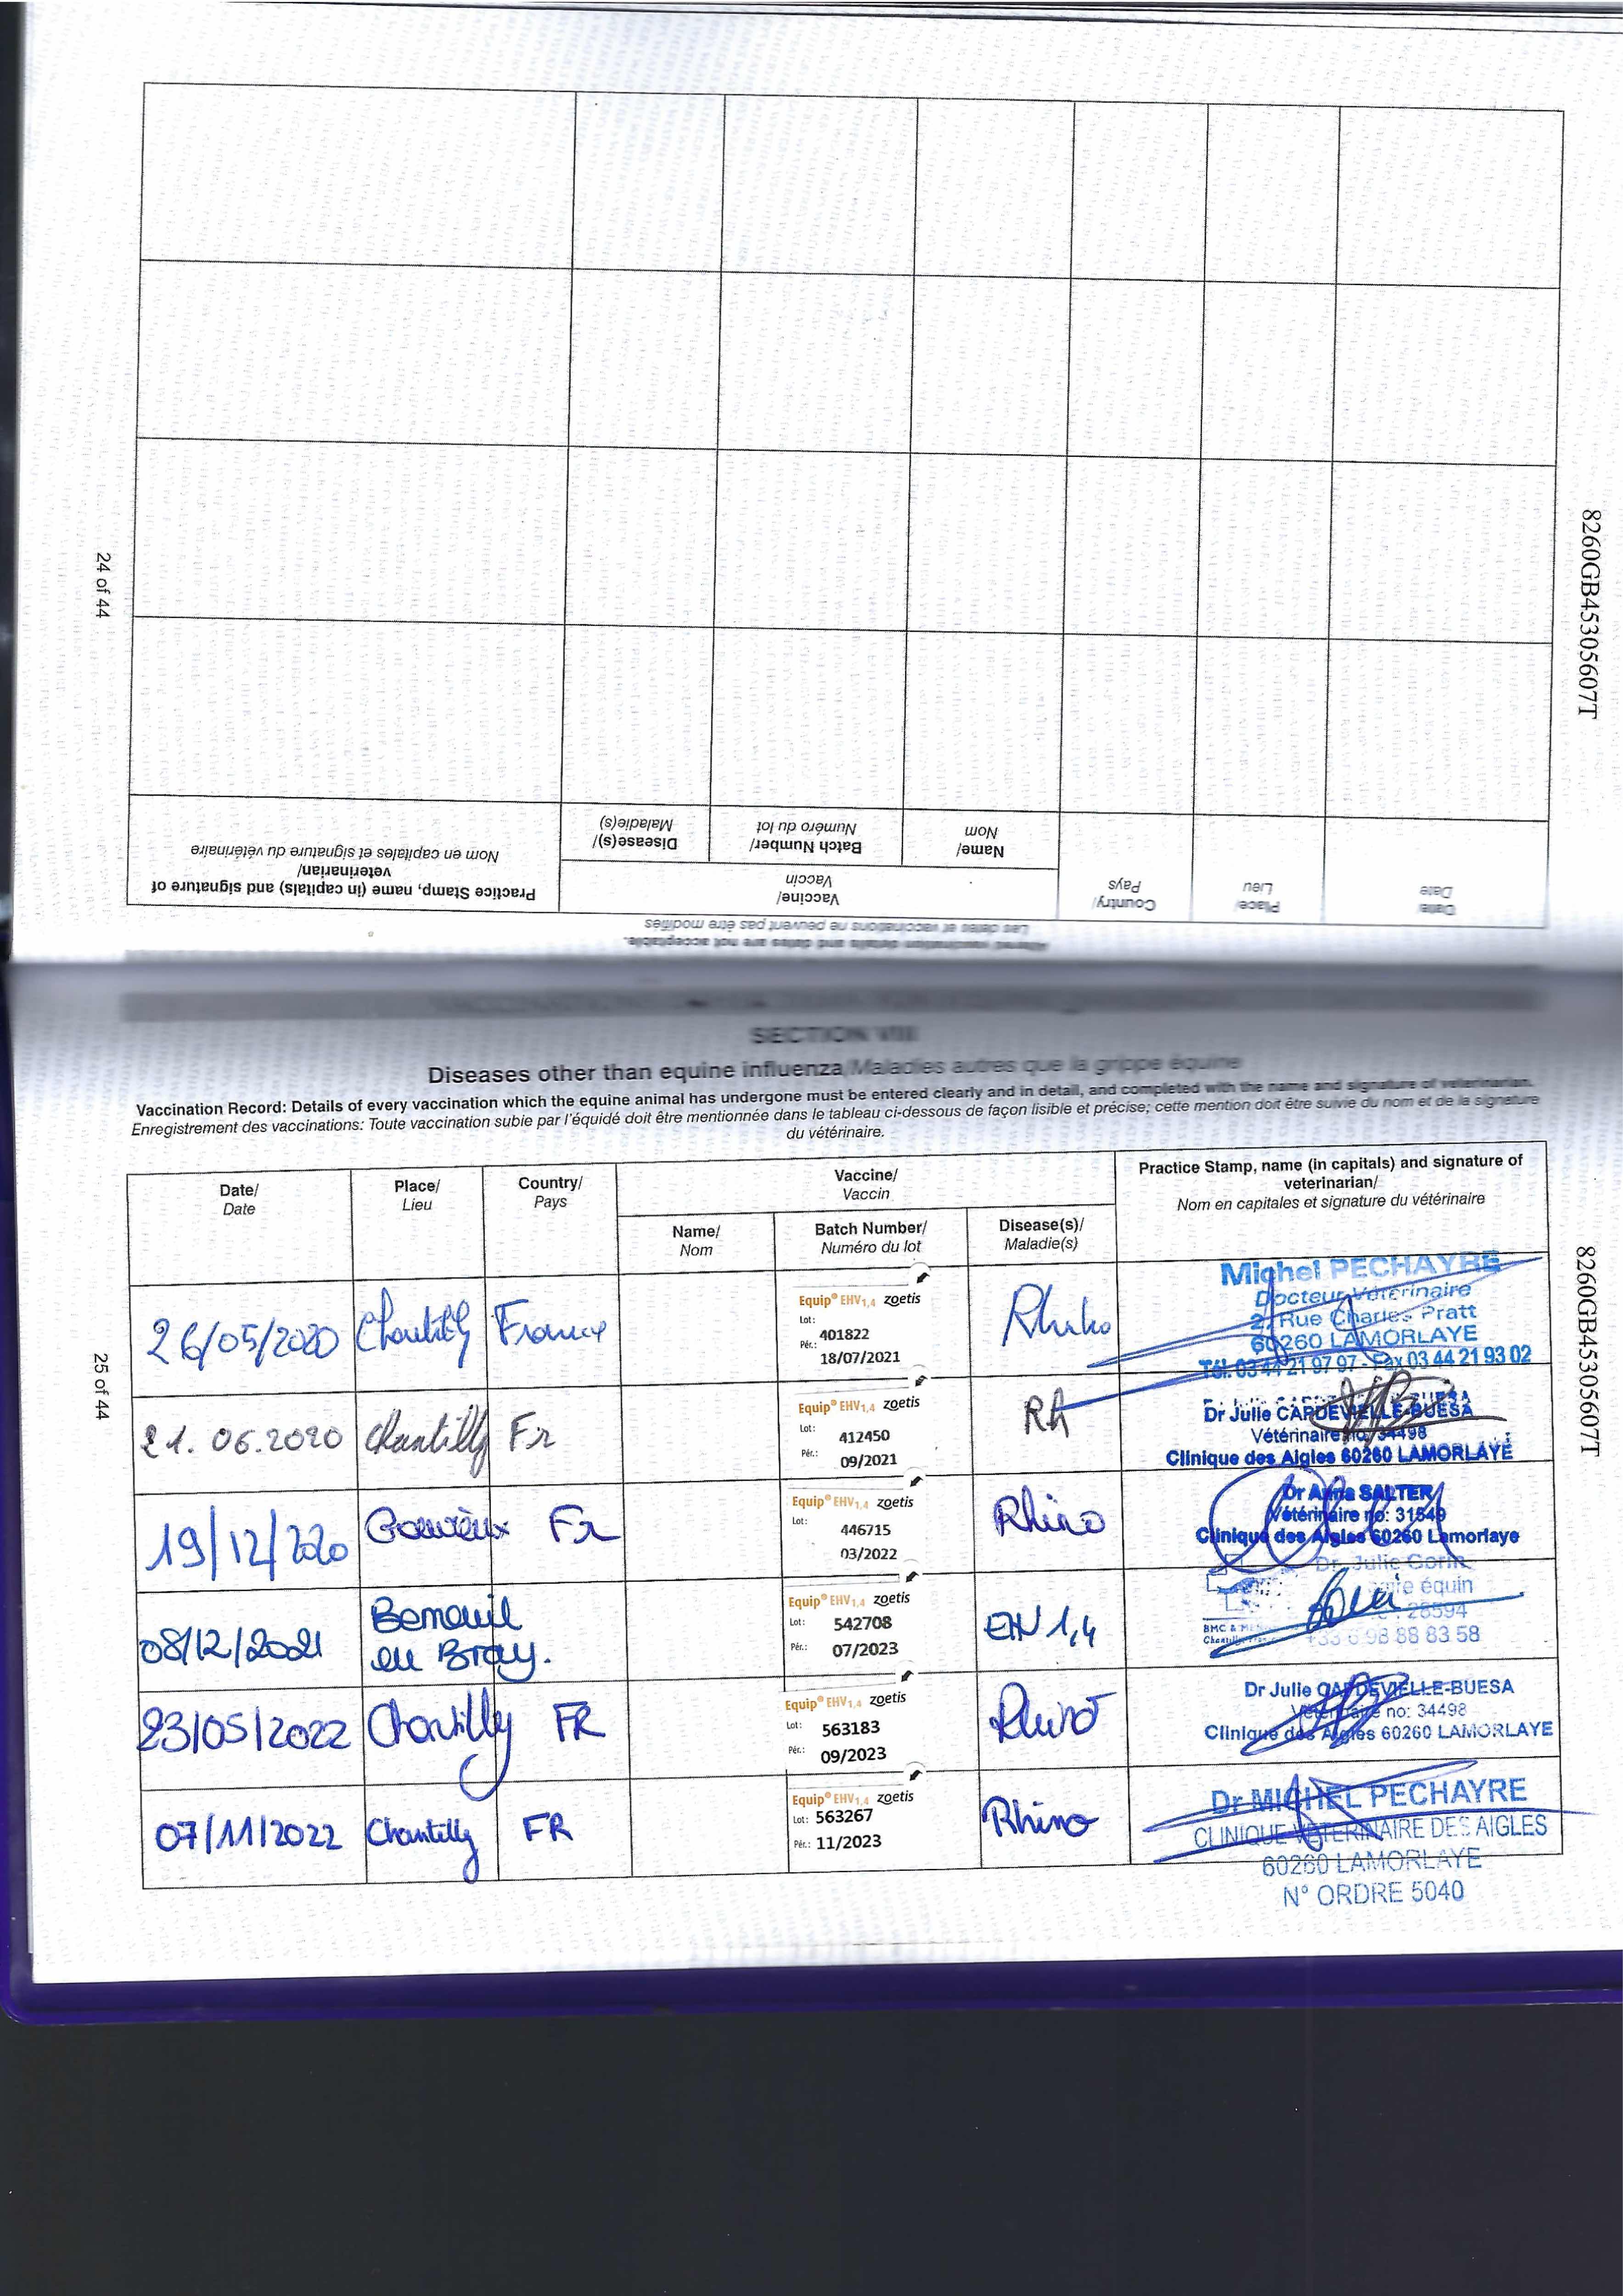 8260GB45305607T
24 of 44
Altered vaccination details and dates are not acceptable.
Les dates et vaccinations ne peuvent pas être modifiés
Date/
Date
Place/
Lieu
Country/
Pays
Vaccine/
Vaccin
Name/
Nom
Batch Number/
Numéro du lot
Disease(s)/
Maladie(s)
Practice Stamp, name (in capitals) and signature of
veterinarian/
Nom en capitales et signature du vétérinaire
SECTION VIII
Diseases other than equine influenza/Maladies autres que la grippe équine
Vaccination Record: Details of every vaccination which the equine animal has undergone must be entered clearly and in detail, and completed with the name and signature of veterinarian.
Enregistrement des vaccinations: Toute vaccination subie par l'équidé doit être mentionnée dans le tableau ci-dessous de façon lisible et précise; cette mention doit être suivie du nom et de la signature
du vétérinaire.
Date/
Date
Place/
Lieu
Country/
Pays
Vaccine/
Vaccin
Name/
Nom
Batch Number/
Numéro du lot
Disease(s)/
Maladie(s)
Practice Stamp, name (in capitals) and signature of
veterinarian/
Nom en capitales et signature du vétérinaire
26/05/2020 Chantilly France
Equip® EHV1,4 zoetis
Lot:
401822
Pér.:
18/07/2021
Michel PECHAYRE
Docteur Vétérinaire
2, Rue Charles Pratt
60260 LAMORLAYE
Tél. 03 44 21 97 97 - Fax 03 44 21 93 02
21.06.2020 Chantilly Fr
Equip® EHV1,4 zoetis
Lot:
412450
Pér.:
09/2021
RH
Dr Julie CARDEVIELLE-BUESA
Vétérinaire no: 34498
Clinique des Aigles 60260 LAMORLAYE
19/12/2020 Gouvieux Fr
Equip® EHV1,4 zoetis
Lot:
446715
03/2022
Rhino
Dr Anna SALTER
Vétérinaire no: 31549
Clinique des Aigles 60260 Lamorlaye
08/12/2021
Berneuil
en Bray.
Equip® EHV1,4 zoetis
Lot: 542708
Pér.: 07/2023
EHV 1,4
Dr. Julie Gorin
équin
+33 6 98 88 83 58
23/05/2022 Chantilly FR
Equip® EHV1,4 zoetis
Lot: 563183
Pér.: 09/2023
Rhino
Dr Julie CARDEVIELLE-BUESA
Vétérinaire no: 34498
Clinique des Aigles 60260 LAMORLAYE
07/11/2022 Chantilly FR
Equip® EHV1,4 zoetis
Lot: 563267
Pér.: 11/2023
Rhino
Dr MICHEL PECHAYRE
CLINIQUE VETERINAIRE DES AIGLES
60260 LAMORLAYE
N° ORDRE 5040
8260GB45305607T
25 of 44